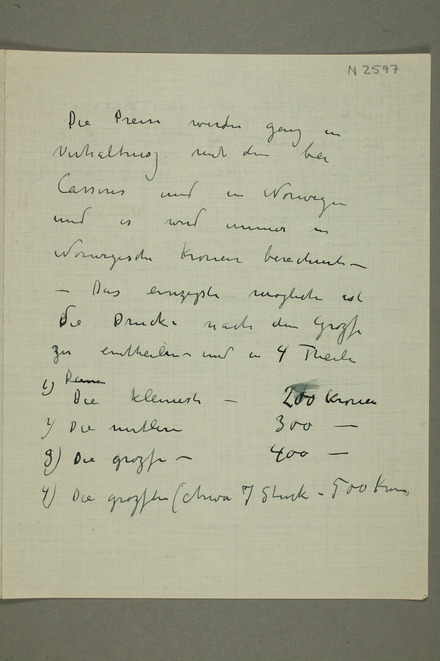 N 2597
Die Preise werden ganz in
Verhaltnisz mit den bei
Cassirer und in Norwegen
und es wird immer in
Norwegische Kronen berechnet —
— Das einzigste mögliche ist
die Drucke nach der Grosse
zu eintheilen und in 4 Theile
1) Die kleinste — 200 Kronen
2) Die mittlere 300 —
3) Die grosse — 400 —
4) Die grossten (etwa 7 Stuck - 500 Kronen